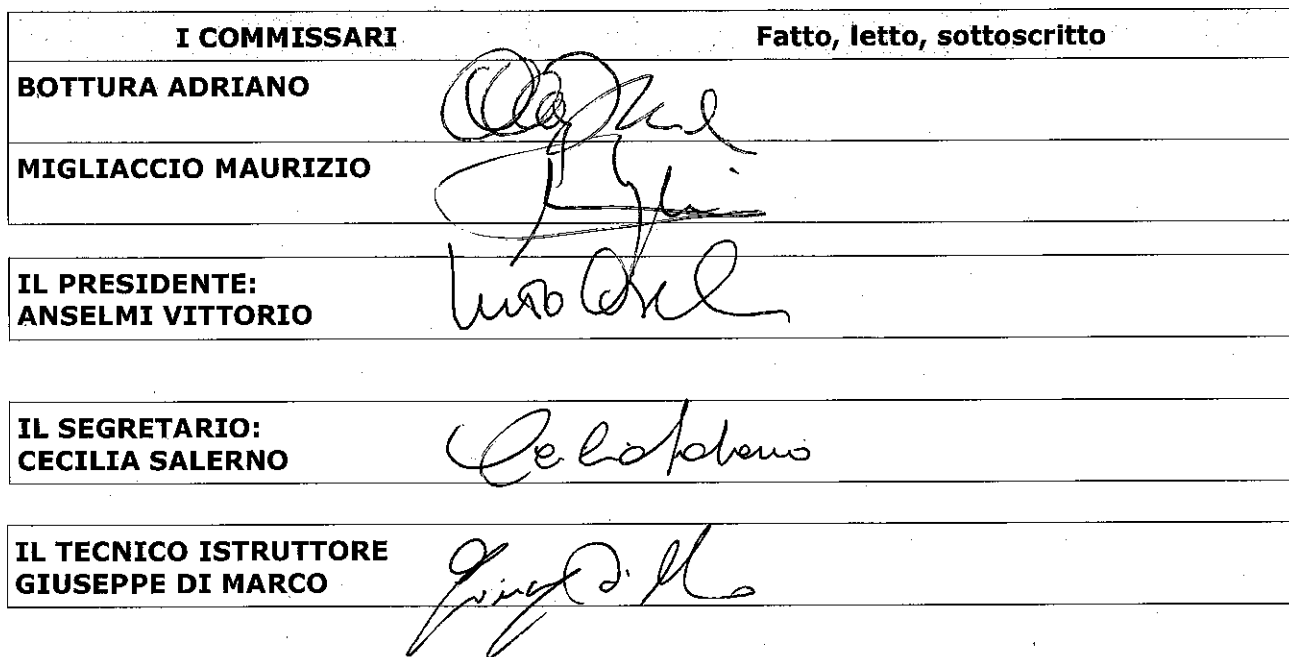 I COMMISSARI Fatto, letto, sottoscritto
BOTTURA ADRIANO
MIGLIACCIO MAURIZIO
IL PRESIDENTE:
ANSELMI VITTORIO
IL SEGRETARIO:
CECILIA SALERNO
IL TECNICO ISTRUTTORE
GIUSEPPE DI MARCO